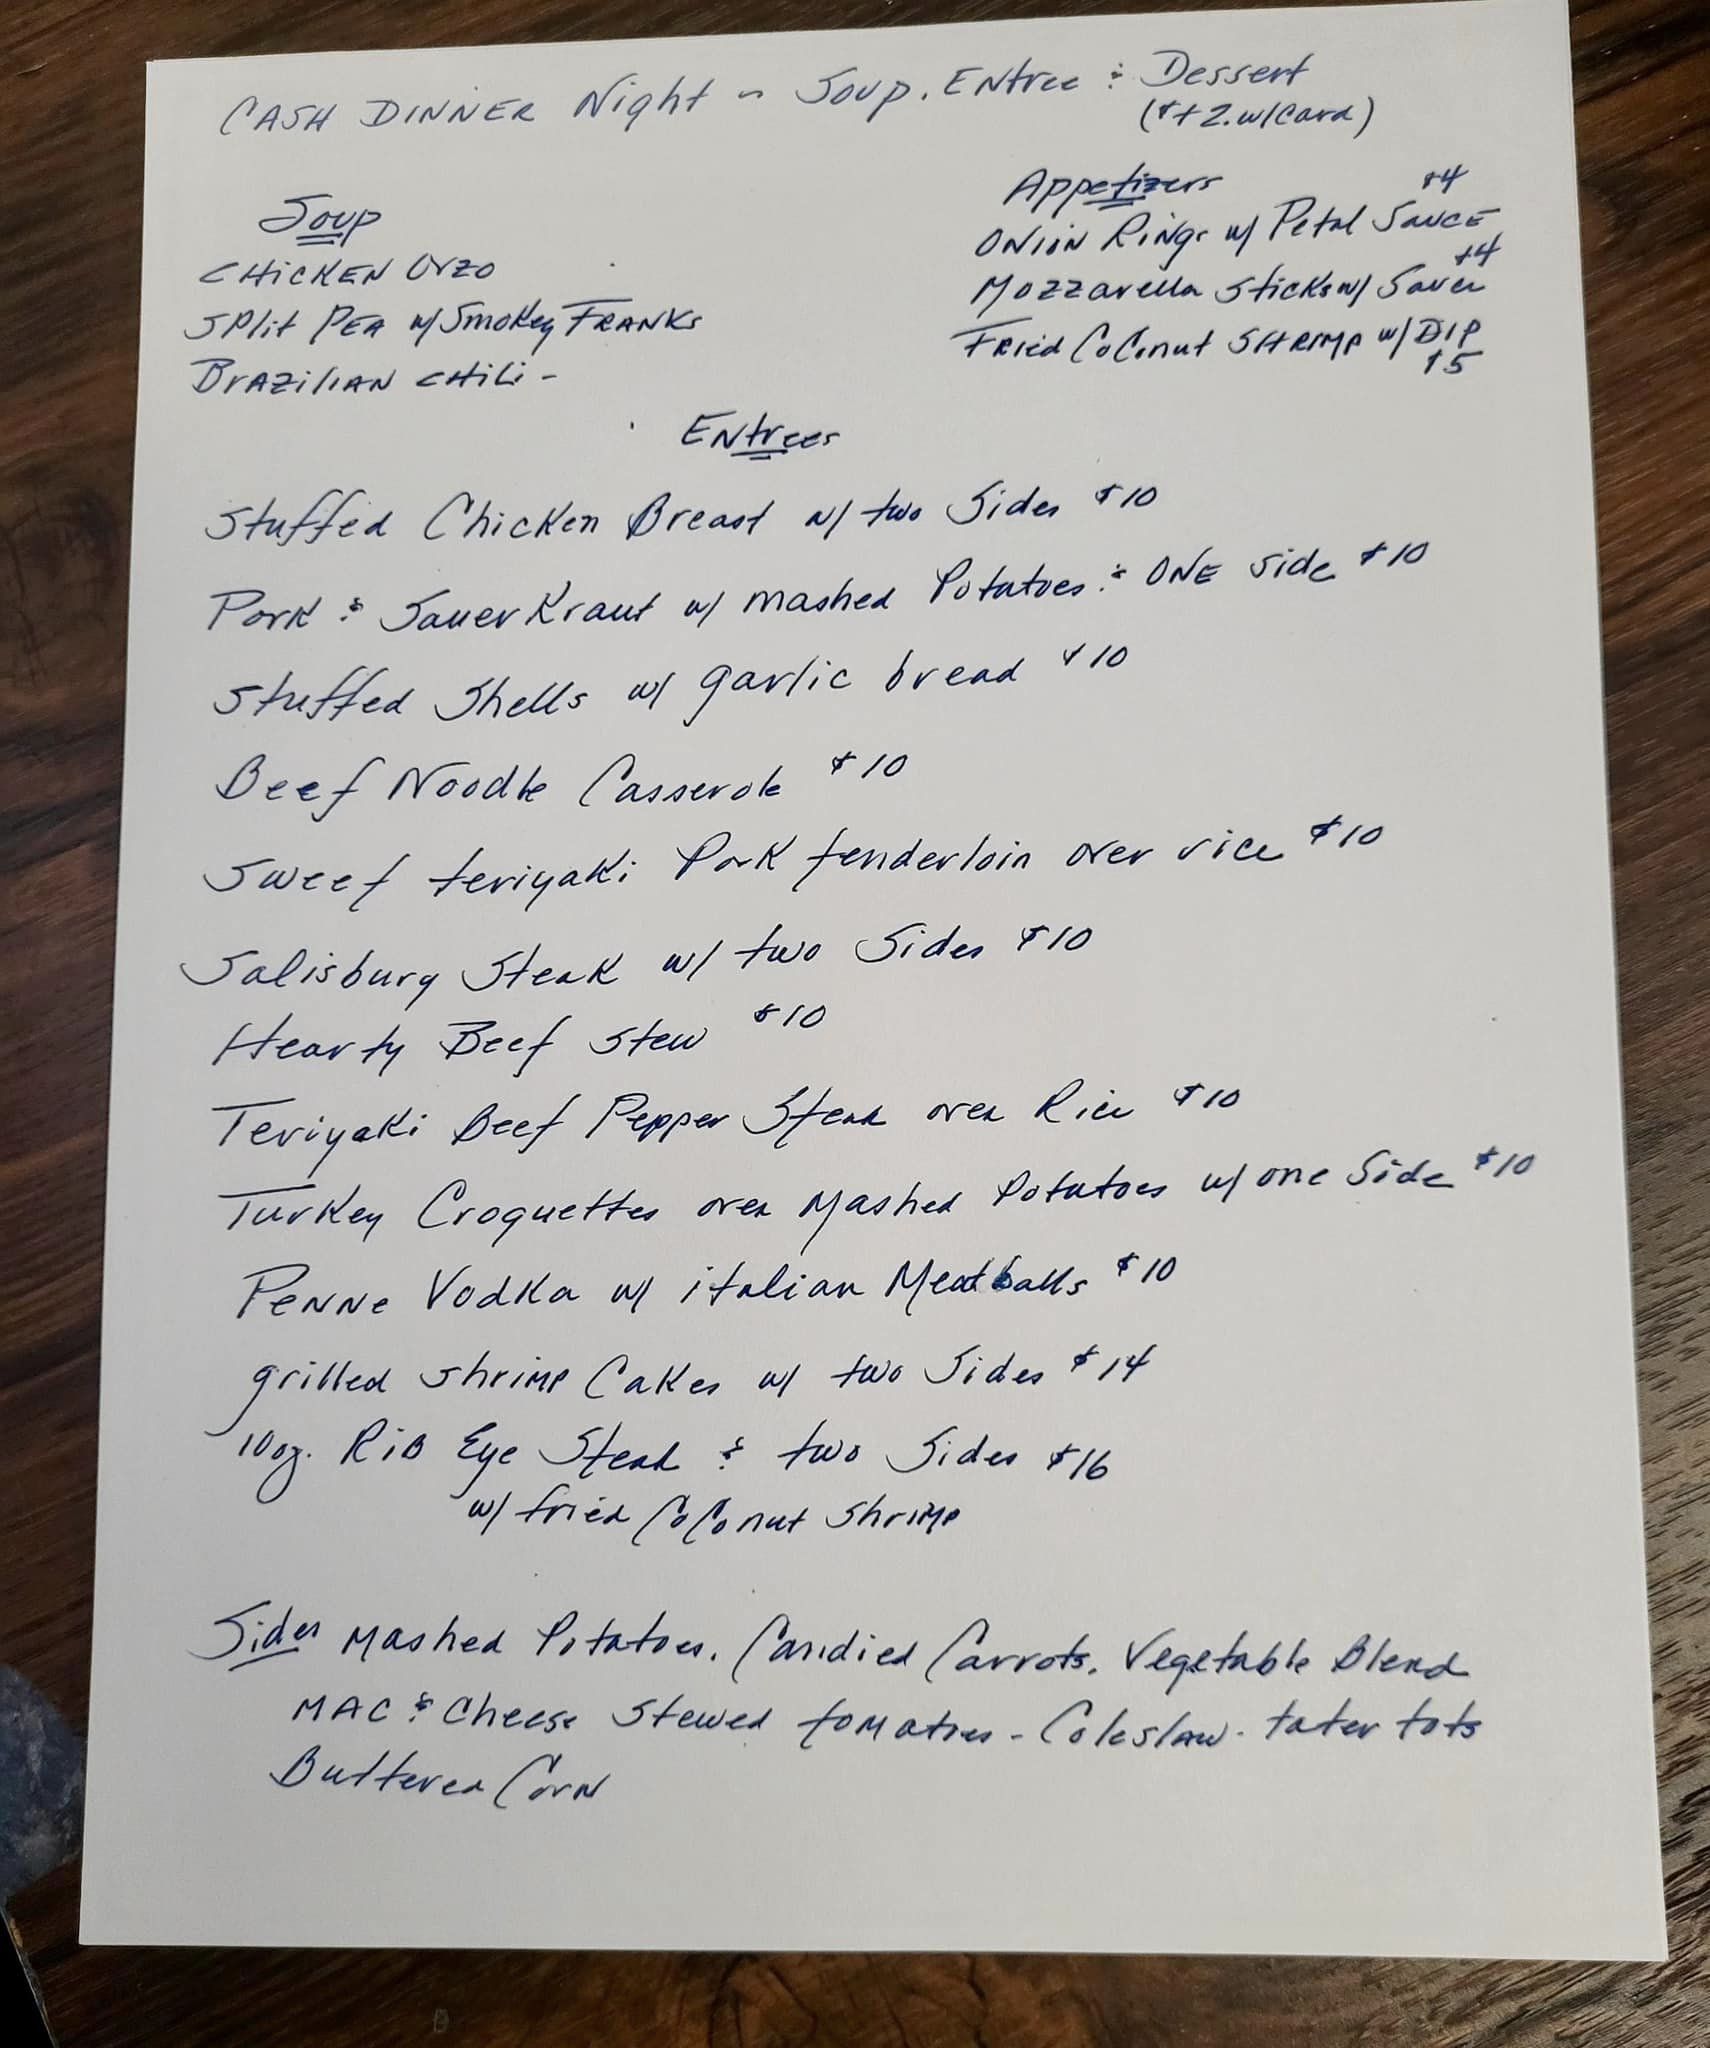 CASH DINNER Night ~ Soup, ENtree & Dessert
($+2. w/Card)
Soup
CHICKEN Orzo
Split PEA w/ Smokey FRANKs
BRAZILIAN CHILI -
Appetizers
ONION Rings w/ Petal SAUCE $4
Mozzarella Sticks w/ Sauce $4
FRied CoConut SHRIMP w/ DIP $5
ENtrees
Stuffed Chicken Breast w/ two Sides $10
Pork & SauerKraut w/ mashed Potatoes & ONE side $10
Stuffed Shells w/ garlic bread $10
Beef Noodle Casserole $10
Sweet teriyaki Pork tenderloin over rice $10
Salisbury Steak w/ two Sides $10
Hearty Beef Stew $10
Teriyaki Beef Pepper Steak over Rice $10
Turkey Croquettes over Mashed Potatoes w/ one Side $10
PeNNe Vodka w/ italian Meatballs $10
grilled shrimp Cakes w/ two Sides $14
10oz. RiB Eye Steak & two Sides $16
w/ fried CoConut shrimp
Sides Mashed Potatoes, Candied Carrots, Vegetable Blend
MAC & Cheese Stewed tomatoes - Coleslaw - tater tots
Buttered CorN